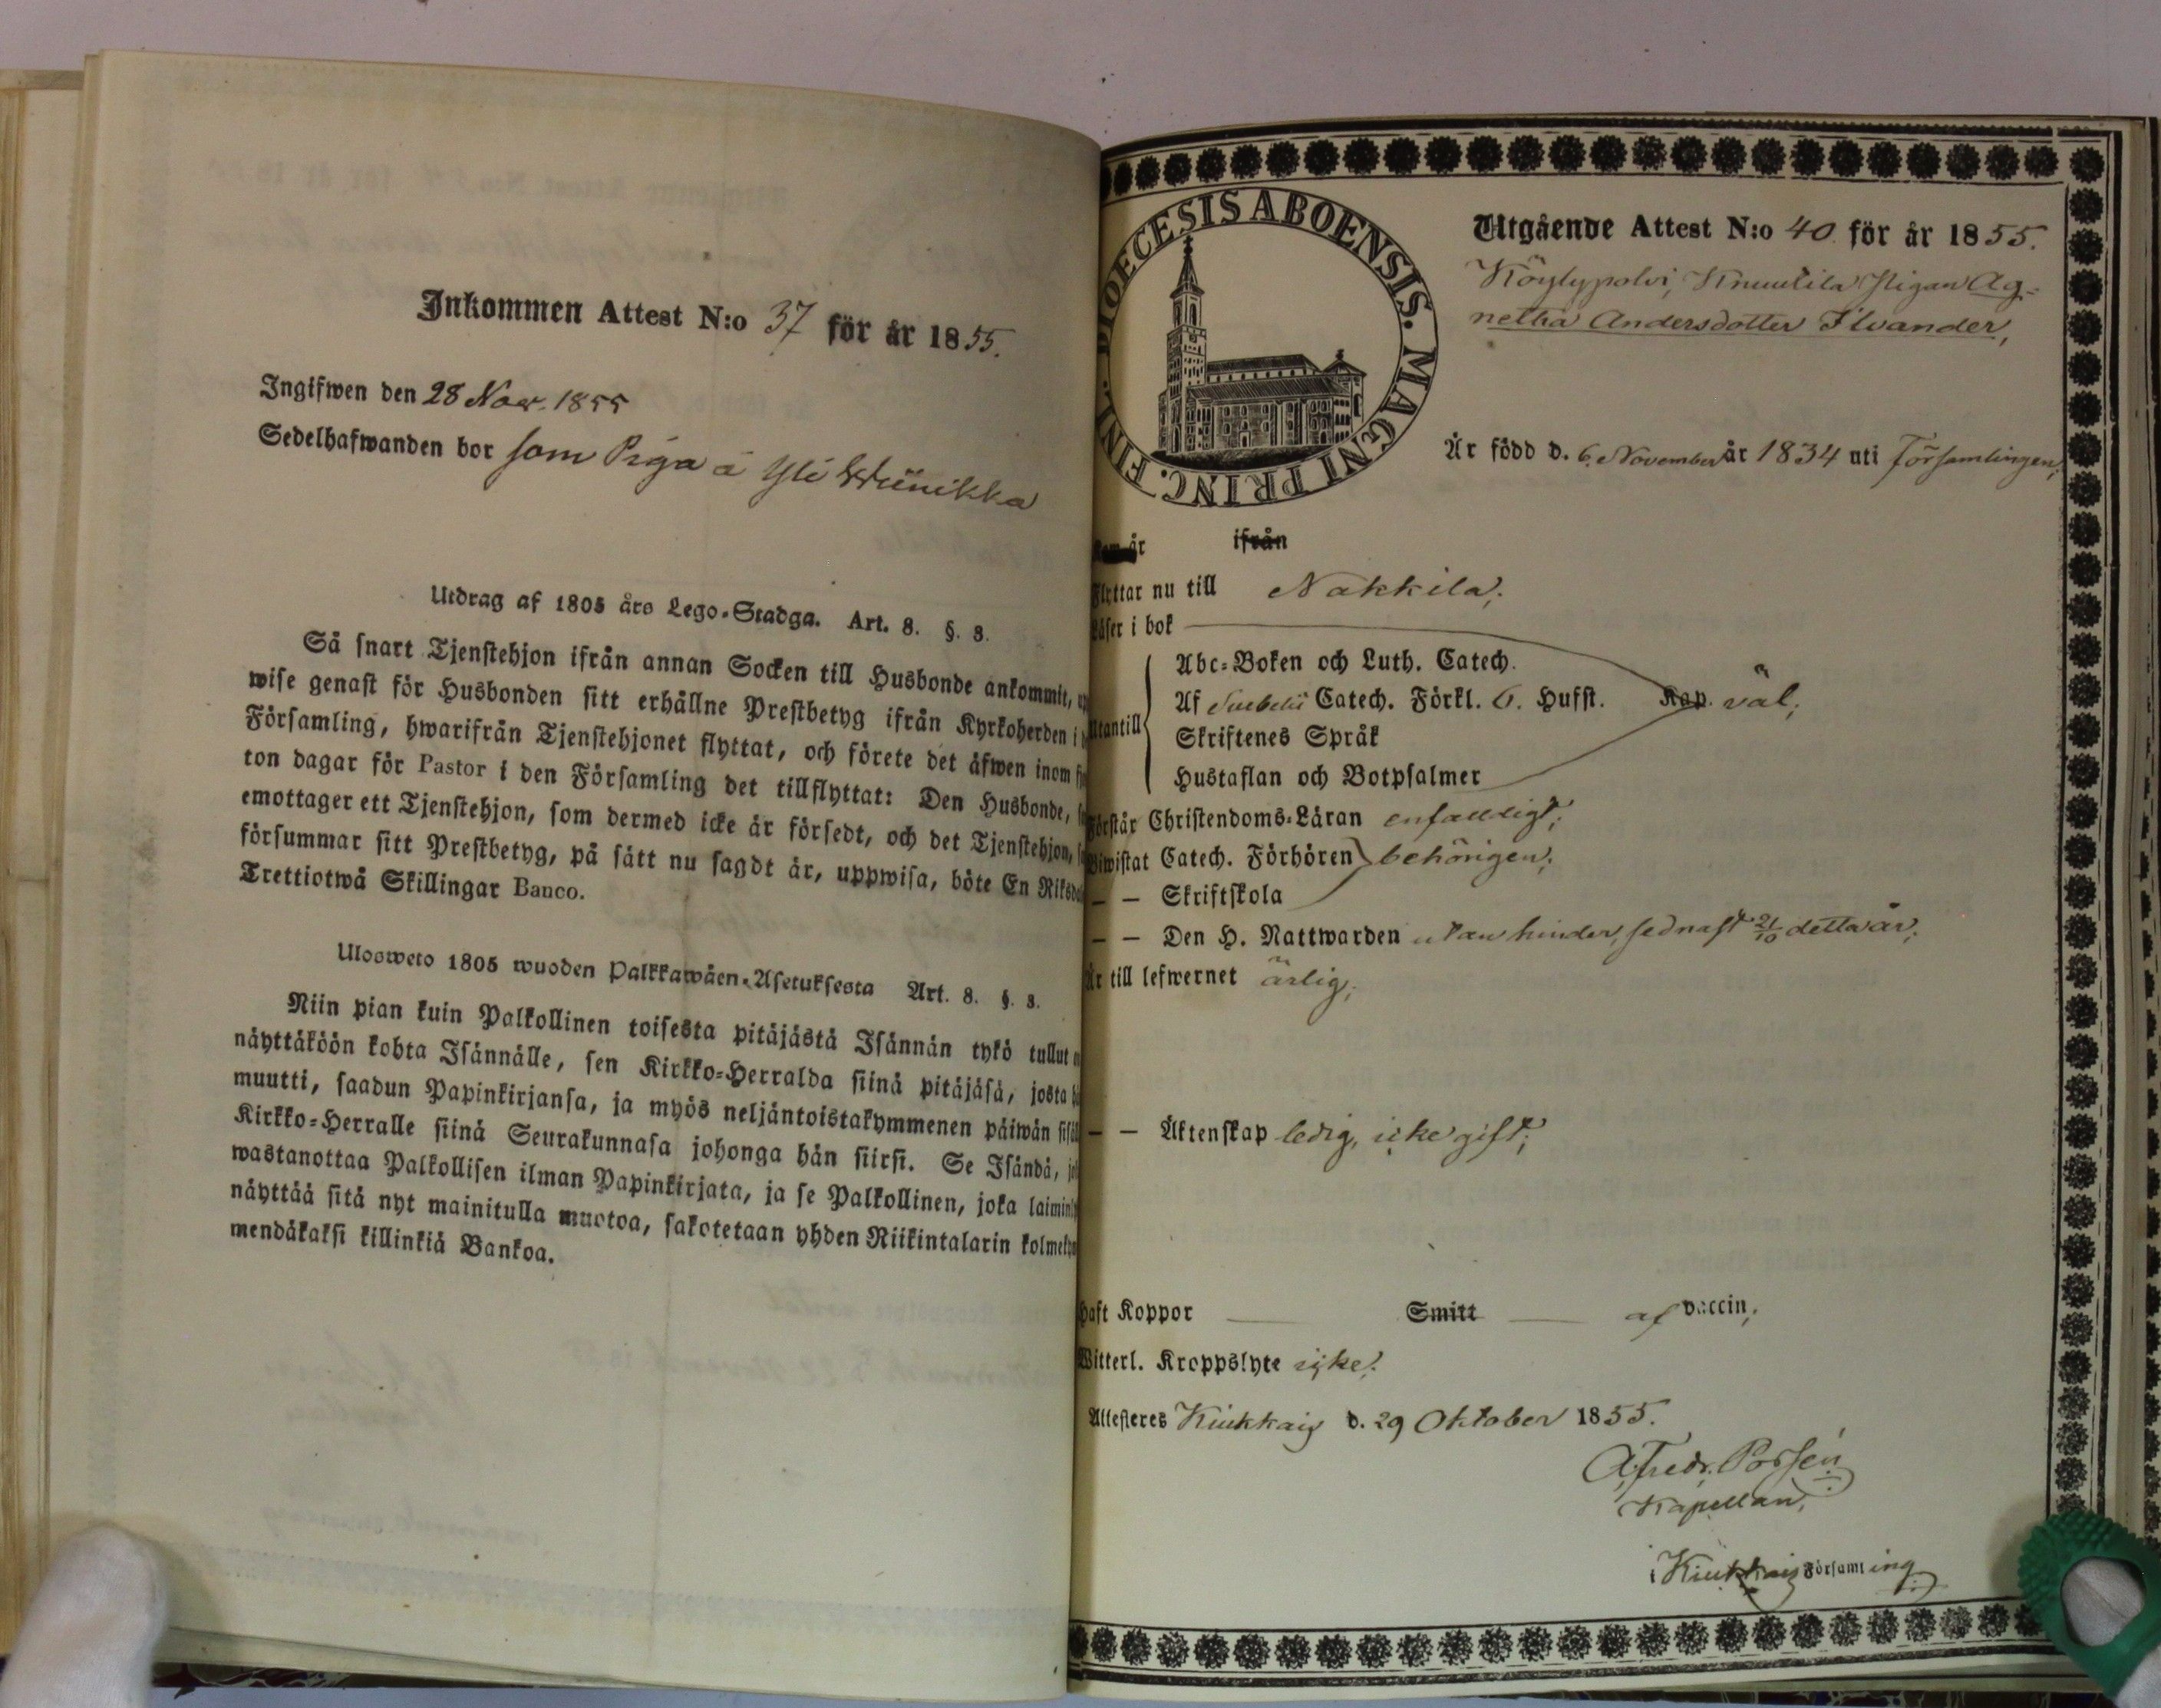 Inkommen Attest N:o 37 för år 1855.
Ingifwen den 28 Nov. 1855
Sedelhafwanden bor som Piga å Yli Wiinikka
Utdrag af 1805 års Lego-Stadga. Art. 8. §. 3.
Så snart Tjenstehjon ifrån annan Socken till Husbonde ankommit,
wise genast för Husbonden sitt erhållne Prestbetyg ifrån Kyrkoherden i
Församling, hwarifrån Tjenstehjonet flyttat, och förete det äfwen inom
ton dagar för Pastor i den Församling det tillflyttat: Den Husbonde,
emottager ett Tjenstehjon, som dermed icke är försedt, och det Tjenstehjon,
försummar sitt Prestbetyg, på sätt nu sagdt är, uppwisa, böte En Riksda
Trettiotwå Skillingar Banco.
Ulosweto 1805 wuoden Palkkawäen-Asetuksesta Art. 8. §. 3.
Niin pian kuin Palkollinen toisesta pitäjästä Isännän tykö tullut
näyttäköön kohta Isännälle, sen Kirkko-Herralda siinä pitäjäsä, josta
muutti, saadun Papinkirjansa, ja myös neljäntoistakymmenen päiwän sisäl
Kirkko-Herralle siinä Seurakunnasa johonga hän siirsi. Se Isändä,
wastanottaa Palkollisen ilman Papinkirjata, ja se Palkollinen, joka laimin
näyttää sitä nyt mainitulla muotoa, sakotetaan yhden Riikintalarin kolmeky
mendäkaksi killinkiä Bankoa.
DIOECESIS ABOENSIS. MAGNI PRINC. FINL.
Utgående Attest N:o 40 för år 1855.
Köylypolvi, Knuutila Pigan Ag-
netha Andersdotter Ilvander,
Är född d. 6. November år 1834 uti Församlingen;
Kom år ifrån
Flyttar nu till Nakkila;
Läser i bok
Abc-Boken och Luth. Catech.
Utantill Af Svebelii Catech. Förkl. 6. Hufst. Kap. väl;
Skriftenes Språk
Hustaflan och Botpsalmer
Förstår Christendoms-Läran enfaldigt;
Biwistat Catech. Förhören behörigen;
— — Skriftskola
— — Den H. Nattwarden utan hinder, sednast 21/10 detta år;
Är till lefwernet ärlig;
— — Äktenskap ledig, icke gift;
Haft Koppor — Smitt — af vaccin;
Witterl. Kroppslyte icke.
Attesteres Kiukkais d. 29 Oktober 1855.
A. Fredr. Porsén
Kapellan,
i Kiukkais Församling